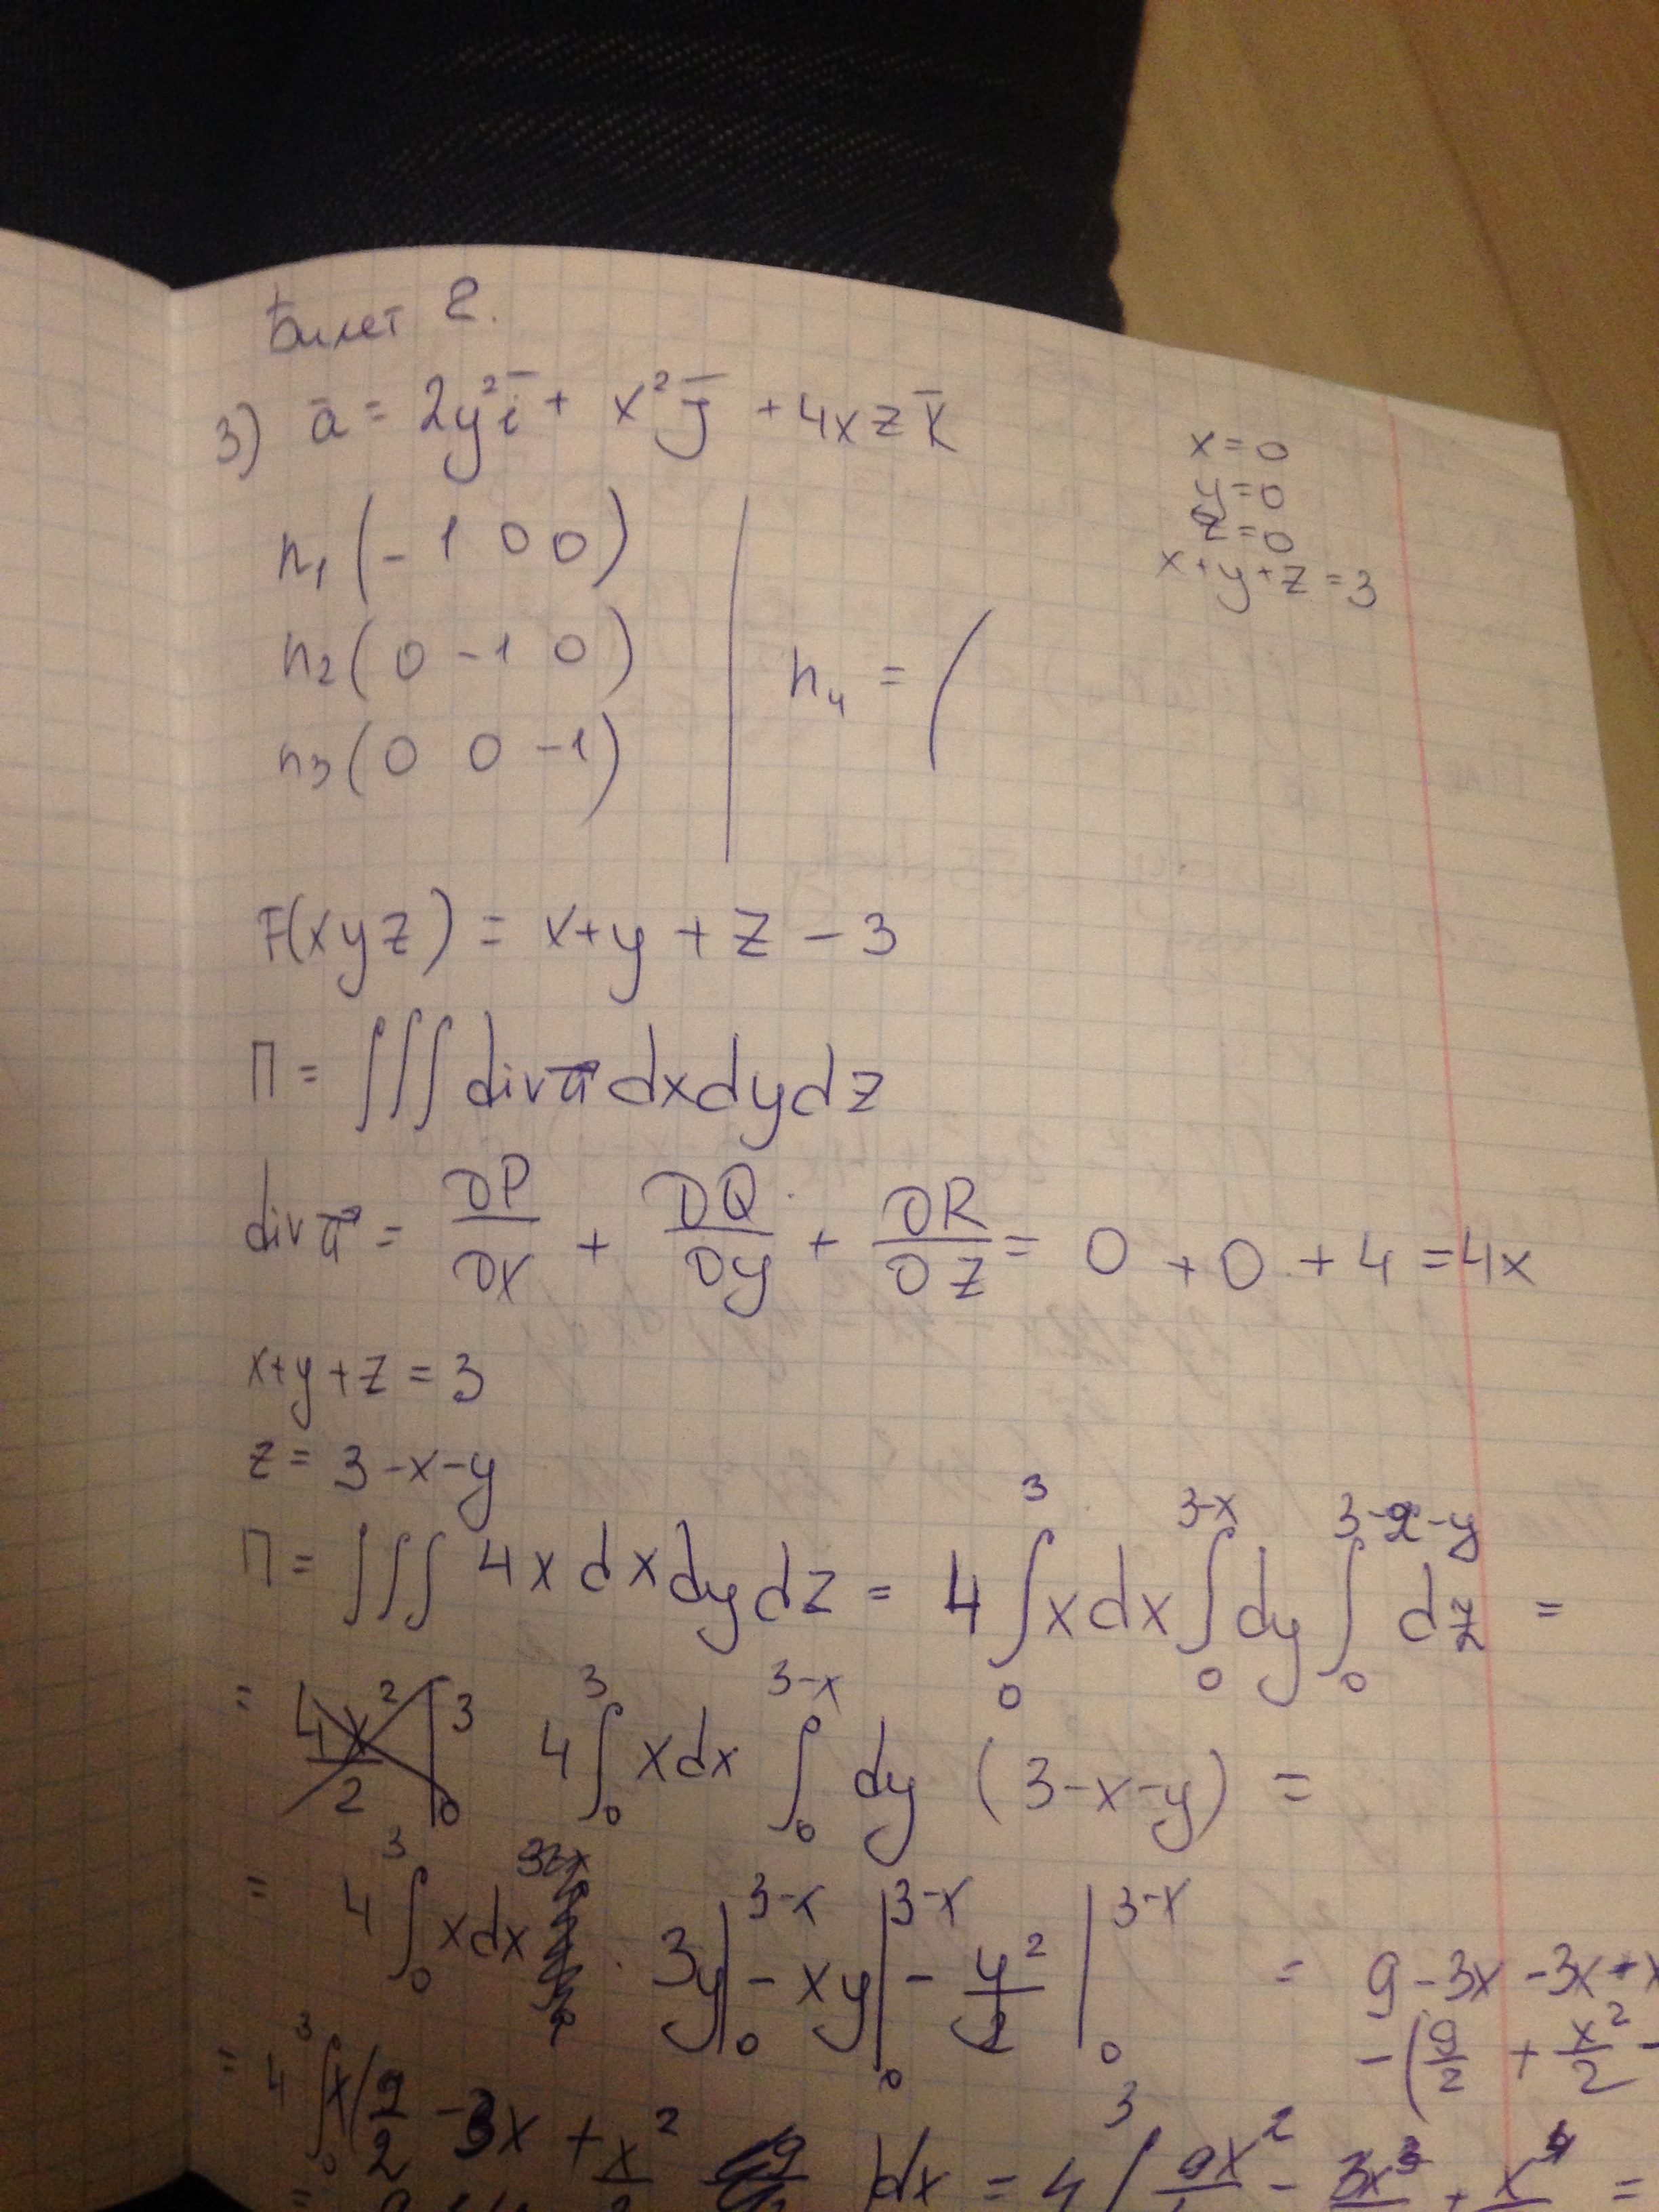 Билет 2.
3) ā = 2y² ī + x² j̄ + 4xz k̄
x=0
y=0
z=0
x+y+z=3
n₁ (-1 0 0)
n₂ (0 -1 0)
n₃ (0 0 -1)
n₄ = (
F(xyz) = x+y+z-3
П = ∫∫∫ div a⃗ dxdydz
div a⃗ = ∂P/∂x + ∂Q/∂y + ∂R/∂z = 0 + 0 + 4 = 4x
x+y+z=3
z = 3-x-y
П = ∫∫∫ 4x dxdydz = 4 ∫₀³ xdx ∫₀³⁻ˣ dy ∫₀³⁻ˣ⁻ʸ dz =
= 4x²/2 |₀³ 4 ∫₀³ xdx ∫₀³⁻ˣ dy (3-x-y) =
= 4 ∫₀³ xdx · 3y|₀³⁻ˣ - xy|₀³⁻ˣ - y²/2 |₀³⁻ˣ = 9-3x-3x+x
-(9/2 + x²/2 -
= 4 ∫₀³ x(9/2 - 3x + x²/2 dx = 4 ( 9x² - 3x³ + x⁴ =